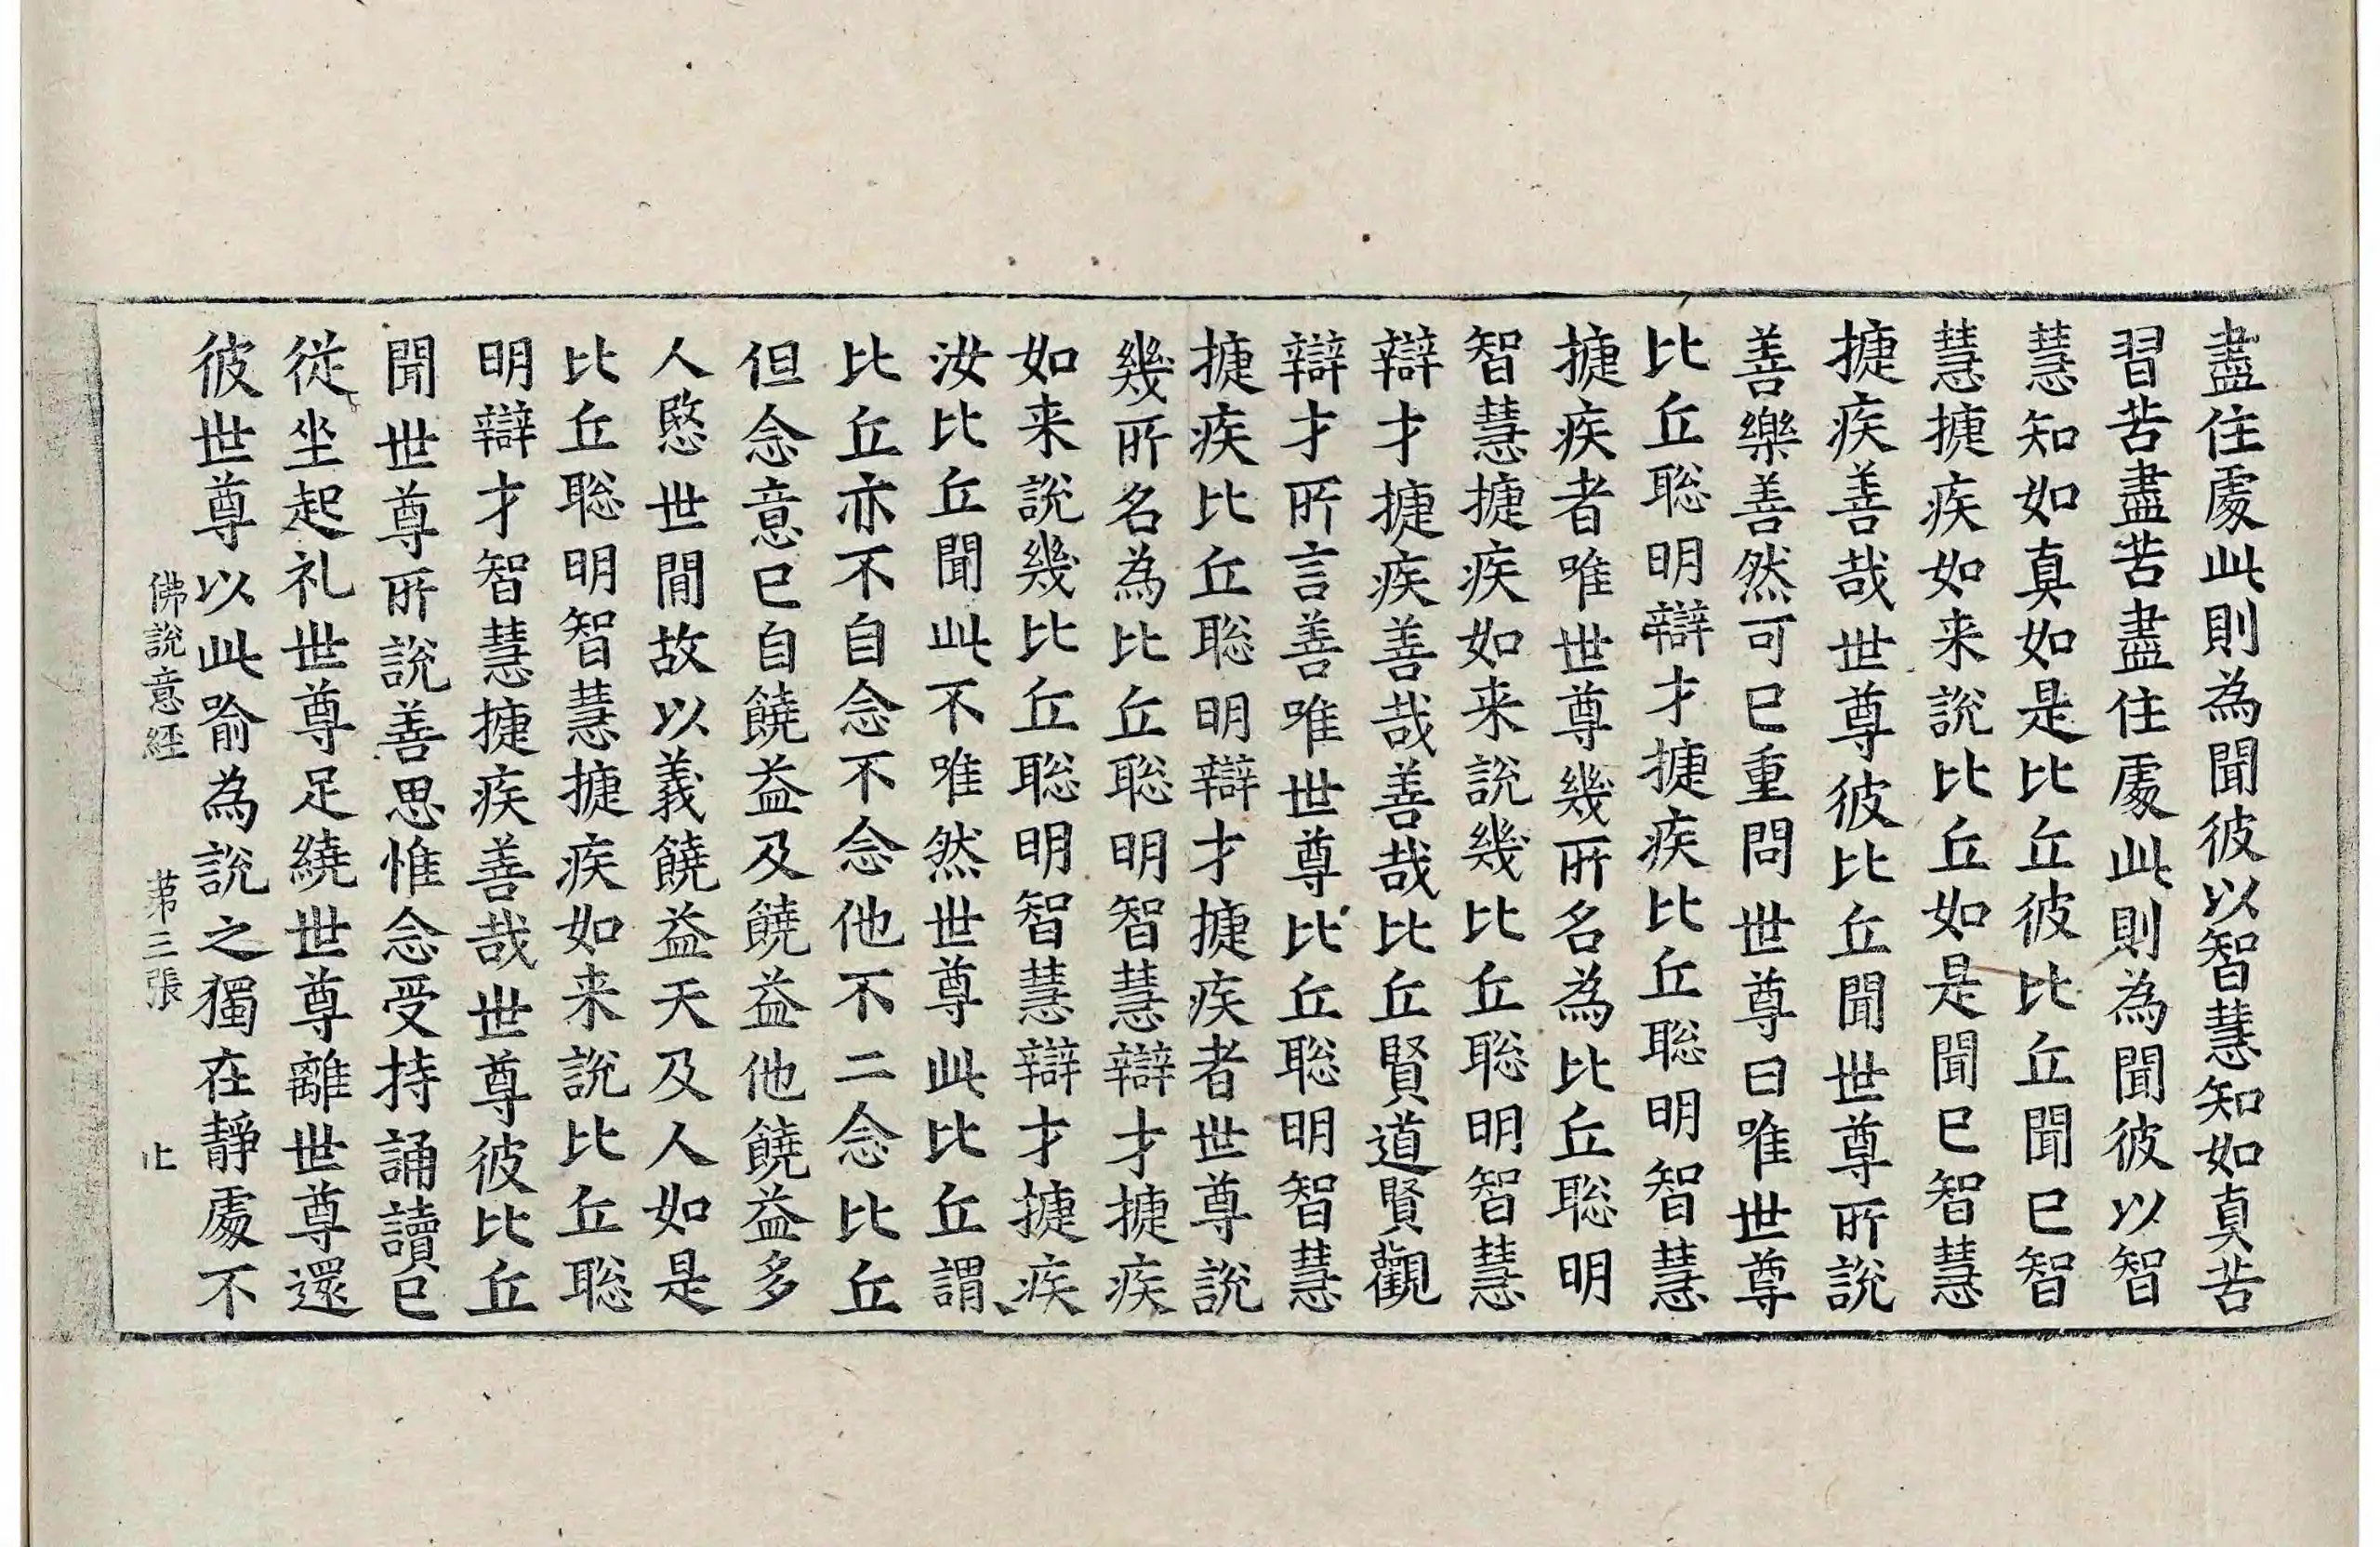 盡住處此則為聞彼以智慧知如真苦
習苦盡苦盡住處此則為聞彼以智
慧知如真如是比丘彼比丘聞已智
慧捷疾如来說比丘如是聞已智慧
捷疾善哉世尊彼比丘聞世尊所說
善樂善然可已重問世尊曰唯世尊
比丘聡明辯才捷疾比丘聡明智慧
捷疾者唯世尊幾所名為比丘聡明
智慧捷疾如来說幾比丘聡明智慧
辯才捷疾善哉善哉比丘賢道賢觀
辯才所言善唯世尊比丘聡明智慧
捷疾比丘聡明辯才捷疾者世尊說
幾所名為比丘聡明智慧辯才捷疾
如来說幾比丘聡明智慧辯才捷疾
汝比丘聞此不唯然世尊此比丘謂
比丘亦不自念不念他不二念比丘
但念意已自饒益及饒益他饒益多
人愍世間故以義饒益天及人如是
比丘聡明智慧捷疾如来說比丘聡
明辯才智慧捷疾善哉世尊彼比丘
聞世尊所說善思惟念受持誦讀已
従坐起礼世尊足繞世尊離世尊還
彼世尊以此喻為說之獨在靜處不
佛說意經 苐三張 止